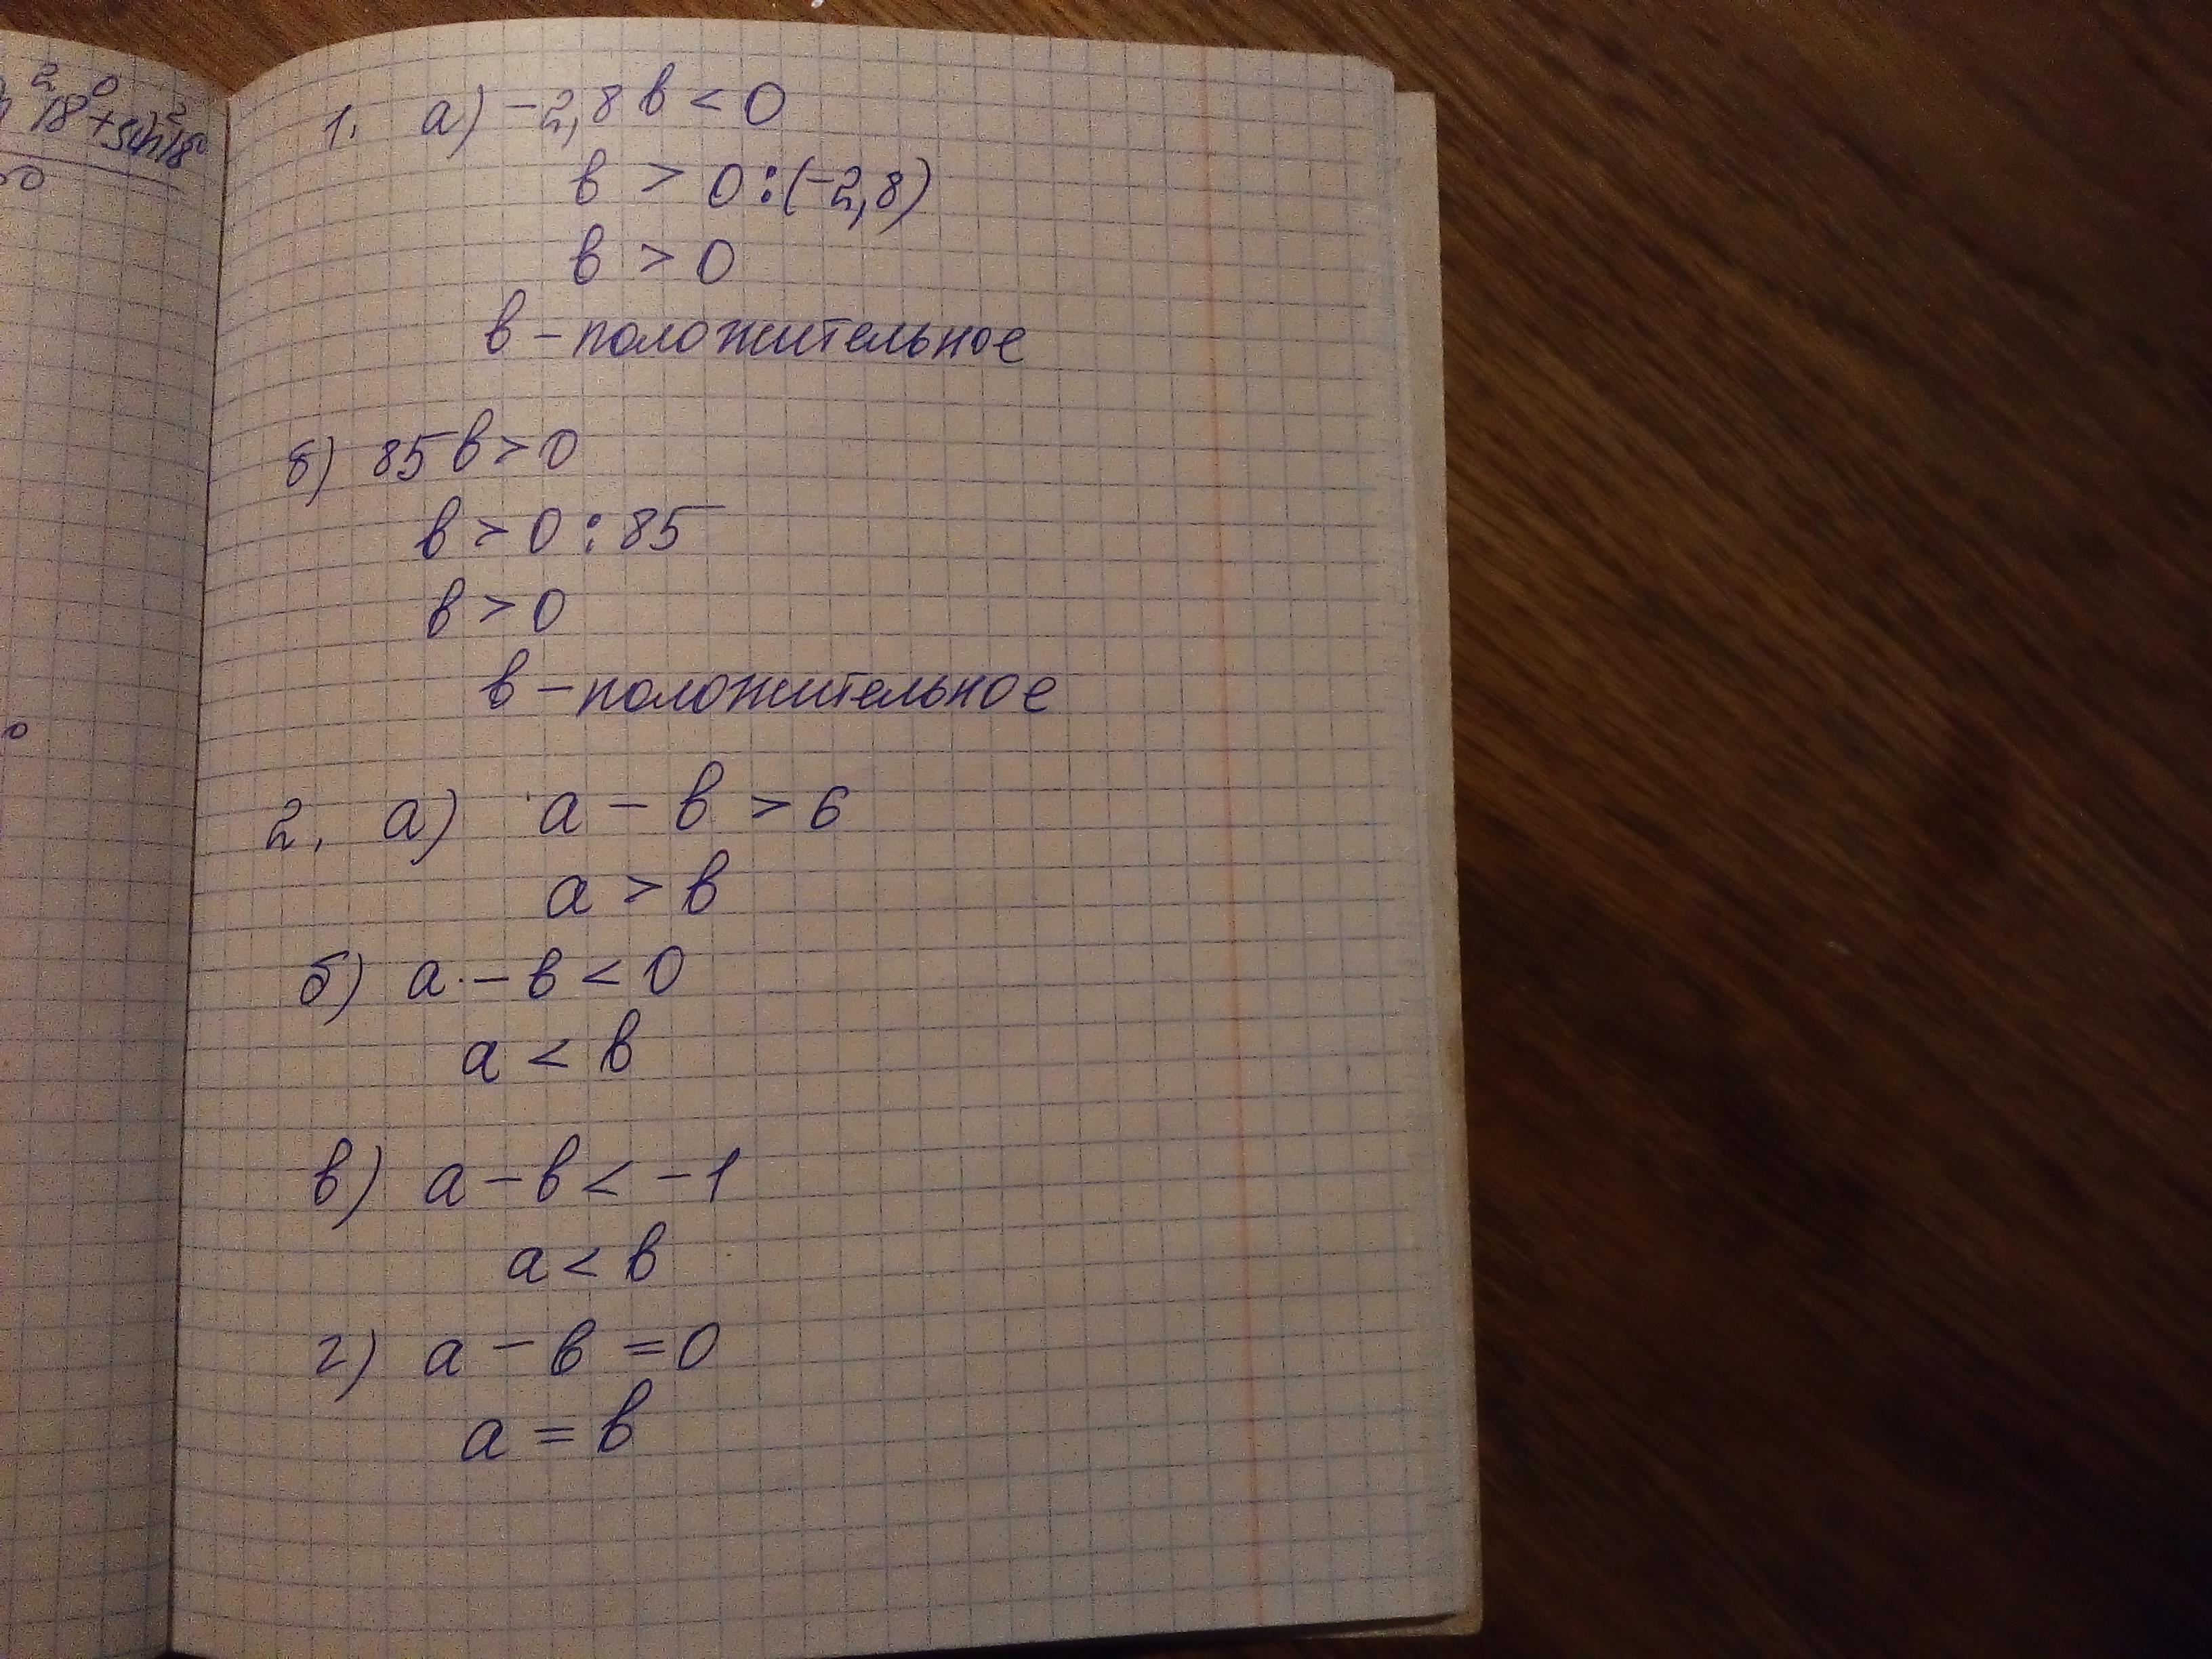 2 0
18 + sin²18°
0
1. а) -2,8 в < 0
в > 0 : (-2,8)
в > 0
в - положительное
б) 85 в > 0
в > 0 : 85
в > 0
в - положительное
2. а) а - в > 6
а > в
б) а - в < 0
а < в
в) а - в < -1
а < в
г) а - в = 0
а = в